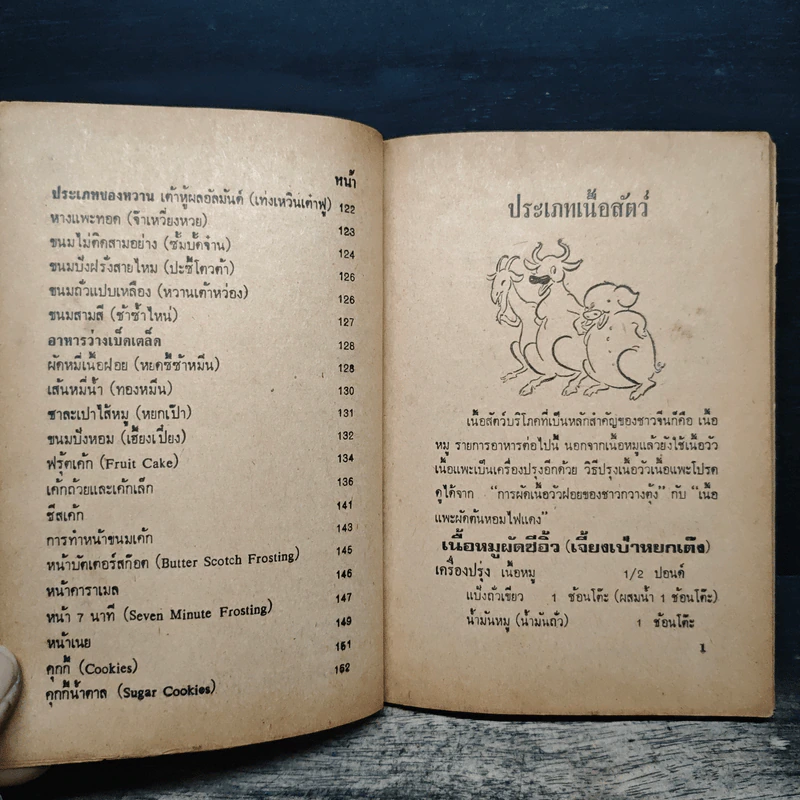 หน้า
ประเภทของหวาน เต้าหู้ผลอัลมันต์ (เท่งเหวินเต๋าฟู) 122
หางแพะทอด (จ้าเหวี่ยงหวย) 123
ขนมไม่ติดสามอย่าง (ซั้มบั้ดจ๋าน) 124
ขนมปังฝรั่งสายไหม (ปะซีโตวต้า) 126
ขนมถั่วแปบเหลือง (หวานเต้าหว่อง) 126
ขนมสามสี (ซ้าซ้ำไหน่) 127
อาหารว่างเบ็ดเตล็ด 128
ผัดหมี่เนื้อฝอย (หยดซีซ้าหมึน) 128
เส้นหมี่น้ำ (ทองหมึน) 130
ซาละเปาไส้หมู (หยกเป๊า) 131
ขนมปังหอม (เฮี้ยงเปี๋ยง) 132
ฟรุ้ตเค้ก (Fruit Cake) 134
เค้กถ้วยและเค้กเล็ก 136
ชีสเค้ก 141
การทำหน้าขนมเค้ก 143
หน้าบัตเตอร์สก๊อต (Butter Scotch Frosting) 145
หน้าคาราเมล 146
หน้า 7 นาที (Seven Minute Frosting) 147
หน้าเนย 149
คุกกี้ (Cookies) 151
คุกกี้น้ำตาล (Sugar Cookies) 152
ประเภทเนื้อสัตว์
เนื้อสัตว์บริโภคที่เป็นหลักสำคัญของชาวจีนก็คือ เนื้อ
หมู รายการอาหารต่อไปนี้ นอกจากเนื้อหมูแล้วยังใช้เนื้อวัว
เนื้อแพะเป็นเครื่องปรุงอีกด้วย วิธีปรุงเนื้อวัวเนื้อแพะโปรด
ดูได้จาก “การผัดเนื้อวัวฝอยของชาวกวางตุ้ง” กับ “เนื้อ
แพะผัดต้นหอมไฟแดง”
เนื้อหมูผัดซีอิ้ว (เจี้ยงเป้าหยกเต๊ง)
เครื่องปรุง เนื้อหมู 1/2 ปอนด์
แป้งถั่วเขียว 1 ช้อนโต๊ะ (ผสมน้ำ 1 ช้อนโต๊ะ)
น้ำมันหมู (น้ำมันถั่ว) 1 ช้อนโต๊ะ
1